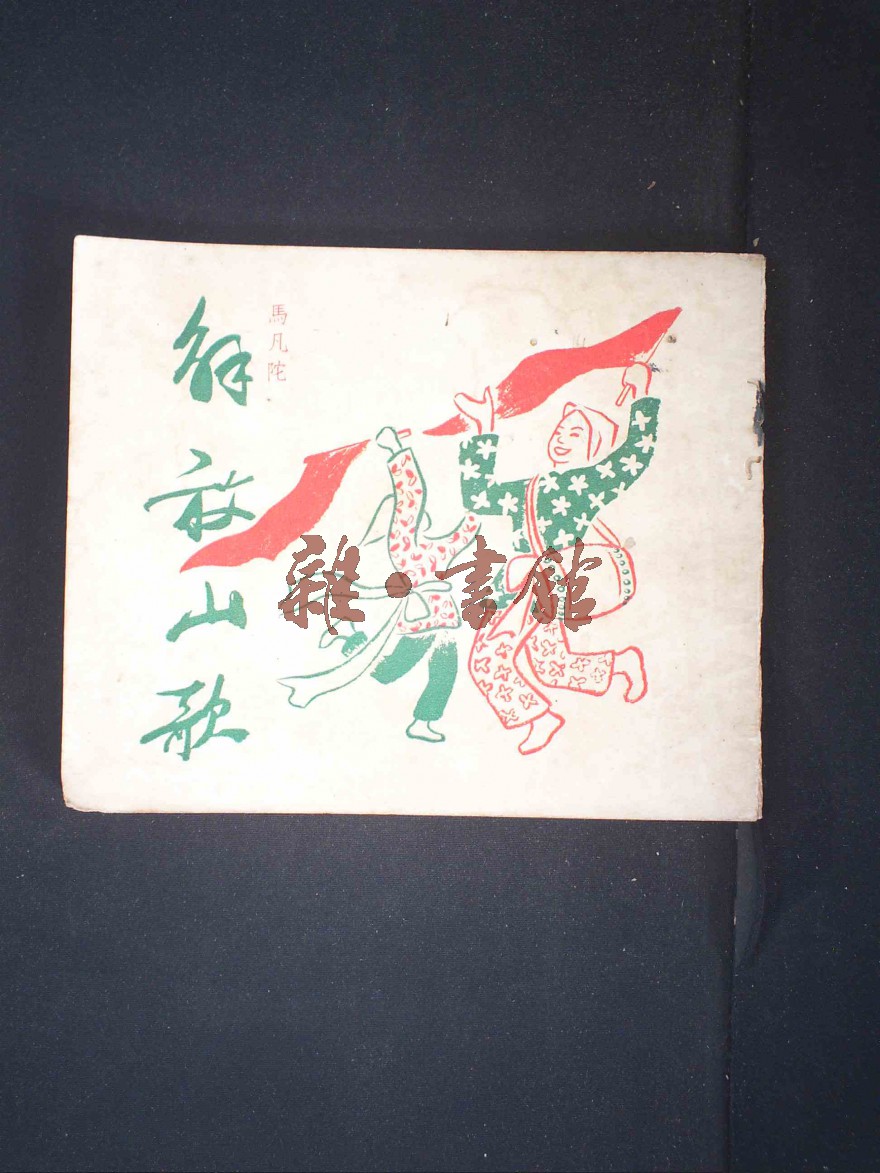 馬凡陀
解放山歌
雜·書館